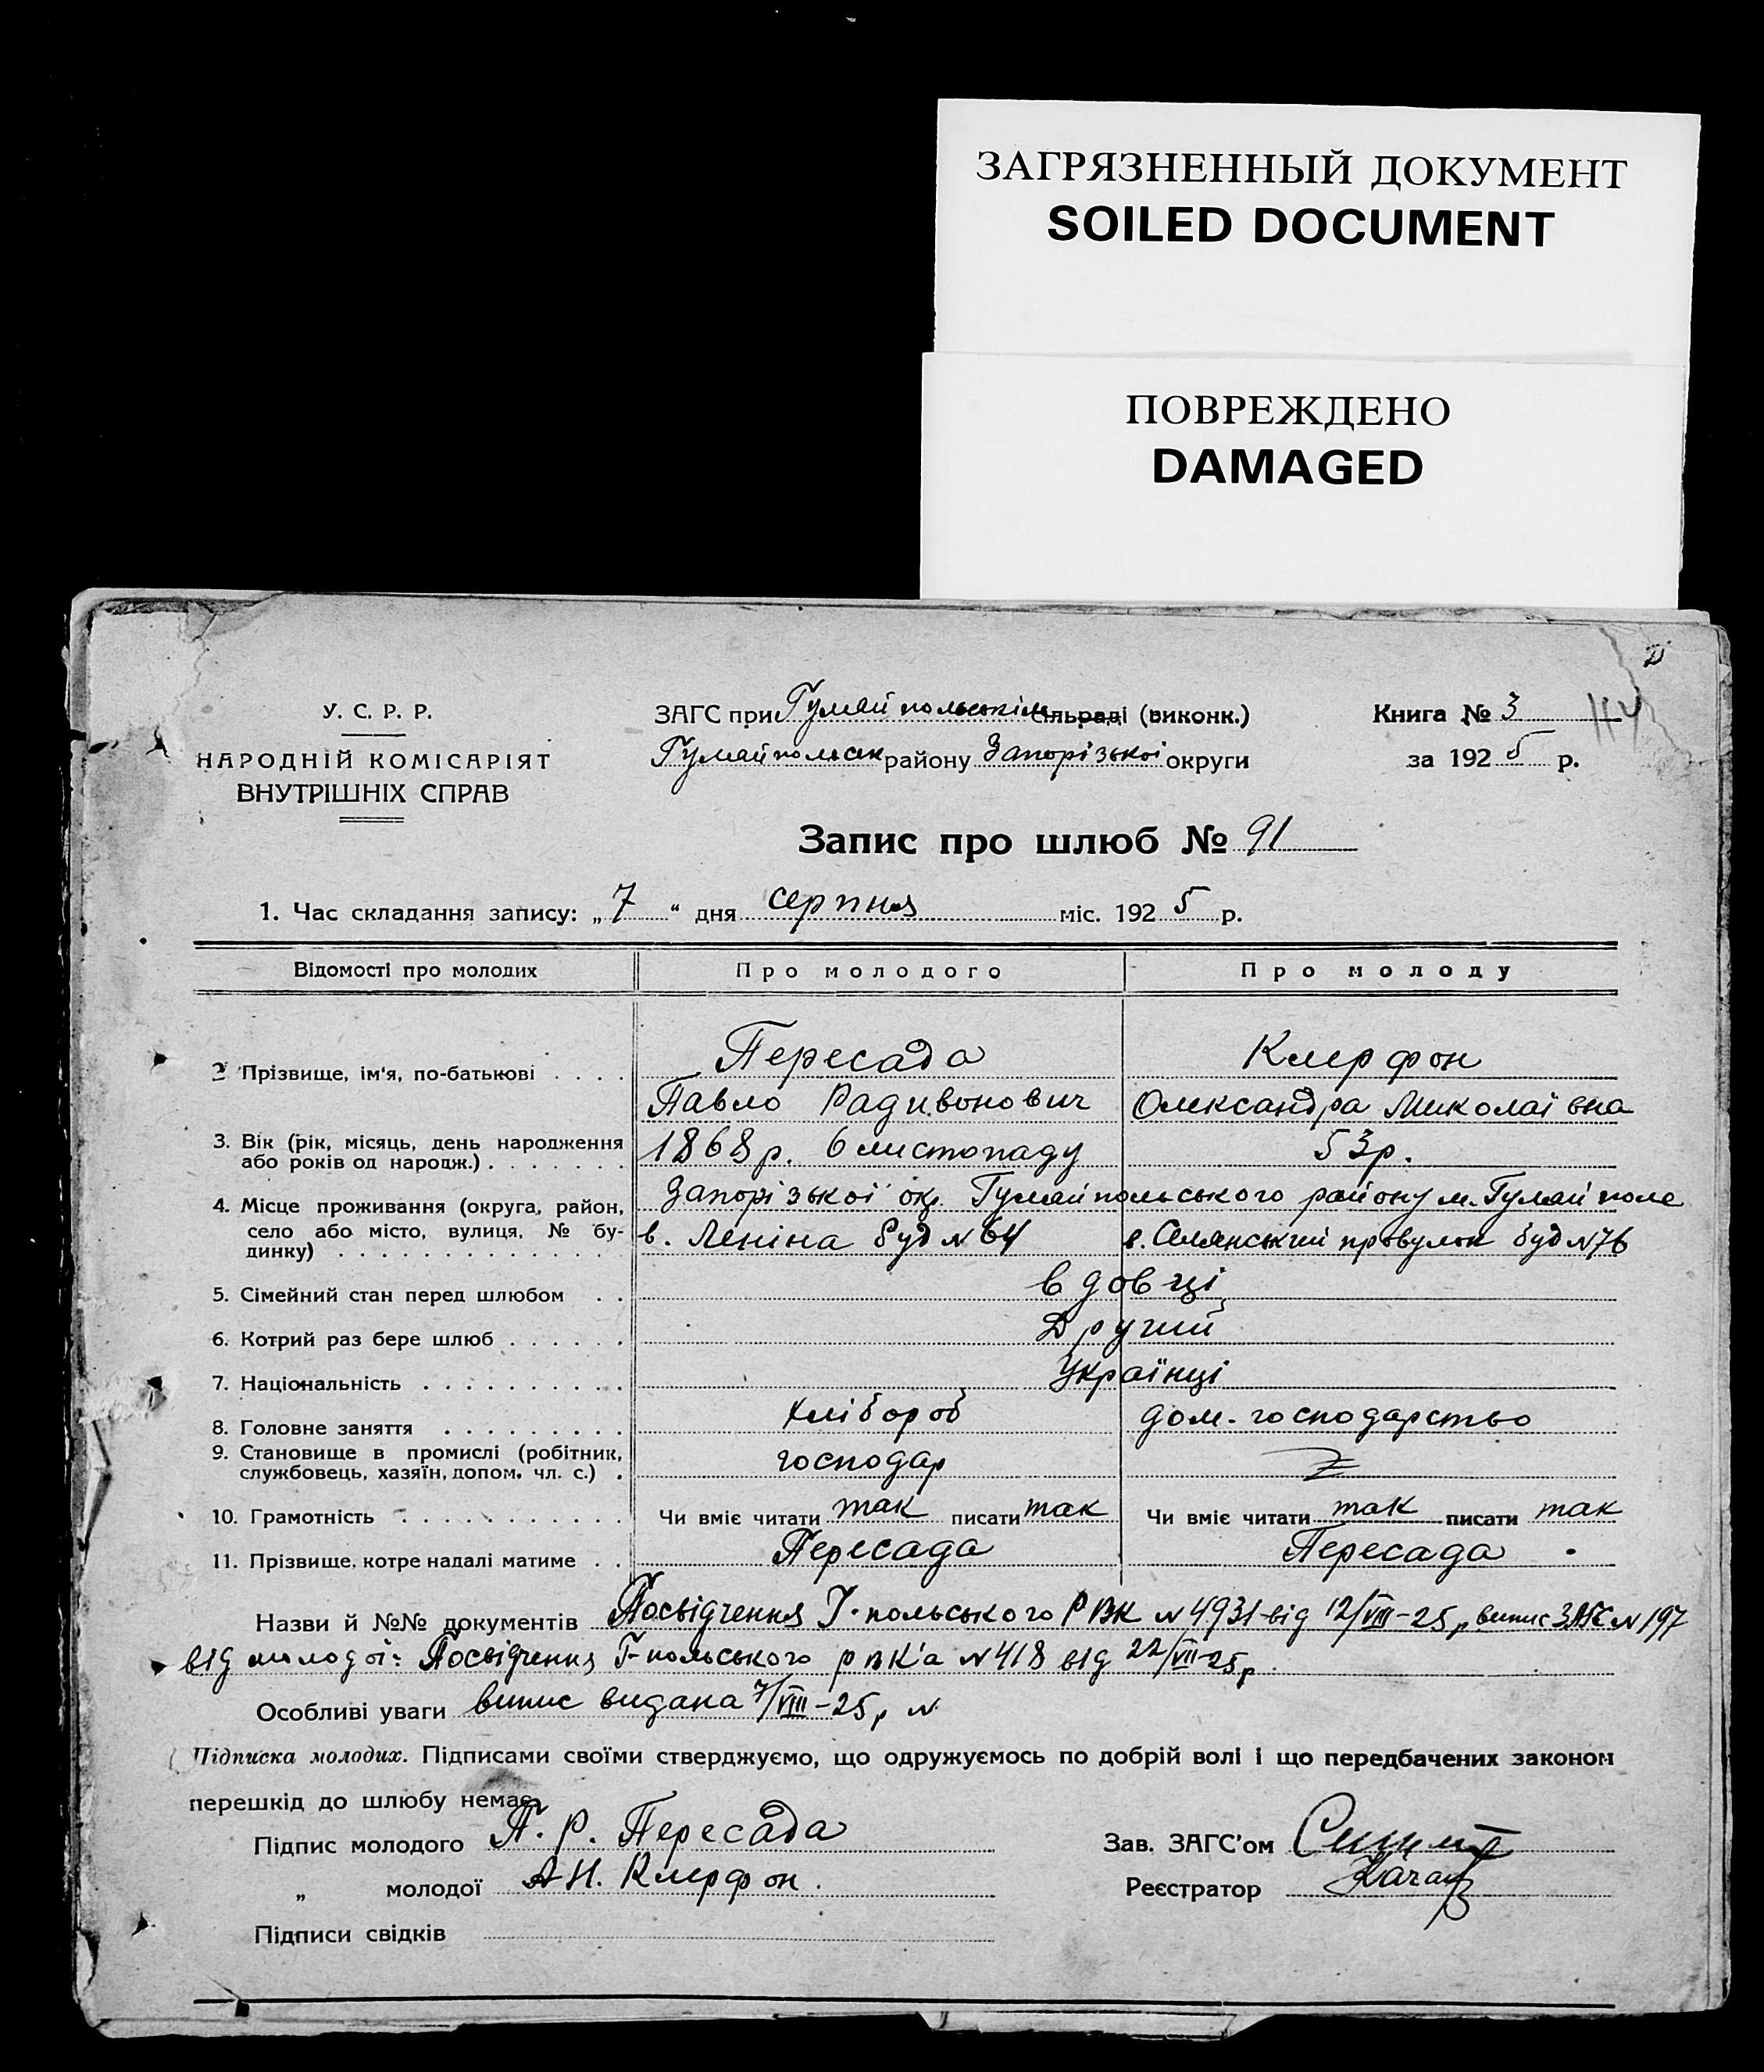 ЗАГРЯЗНЕННЫЙ ДОКУМЕНТ
SOILED DOCUMENT
ПОВРЕЖДЕНО
DAMAGED
У. С. Р. Р.
НАРОДНІЙ КОМІСАРІЯТ
ВНУТРІШНІХ СПРАВ
ЗАГС при Гуляйпольськім сільраді (виконк.)
Гуляйпольськ району Запорізької округи
Книга № 3
114
за 1925 р.
Запис про шлюб № 91
1. Час складання запису: „7“ дня серпня міс. 1925 р.
Відомості про молодих Про молодого Про молоду
2 Прізвище, ім'я, по-батькові . . . . Пересада Клерфон
Павло Радивонович Олександра Миколаївна
3. Вік (рік, місяць, день народження
або років од народж.) . . . . . . . 1868 р. 6 листопаду 53 р.
4. Місце проживання (округа, район, Запорізької окр. Гуляйпольського району м. Гуляйполе
село або місто, вулиця, № бу- в. Леніна буд N 64 в. Селянський провулок буд N 76
динку) . . . . . . . . . . . . .
5. Сімейний стан перед шлюбом . . вдовці
6. Котрий раз бере шлюб . . . . . . Другий
7. Національність . . . . . . . . . . Українці
8. Головне заняття . . . . . . . . . хлібороб дом-господарство
9. Становище в промислі (робітник,
службовець, хазяїн, допом. чл. с.) . господар
10. Грамотність . . . . . . . . . . . Чи вміє читати так писати так Чи вміє читати так писати так
11. Прізвище, котре надалі матиме . . Пересада Пересада
Назви й №№ документів Посвідчення Г-польського РВК N 4931 від 12/VIII-25 р випис ЗАГС N 197
від молодої: Посвідчення Г-польського рвк'а N 418 від 22/VII-25р
Особливі уваги випис видана 7/VIII-25 р N
Підписка молодих. Підписами своїми стверджуємо, що одружуємось по добрій волі і що передбачених законом
перешкід до шлюбу немає.
Підпис молодого П. Р. Пересада Зав. ЗАГС'ом
„ молодої А Н. Клерфон. Реєстратор
Підписи свідків